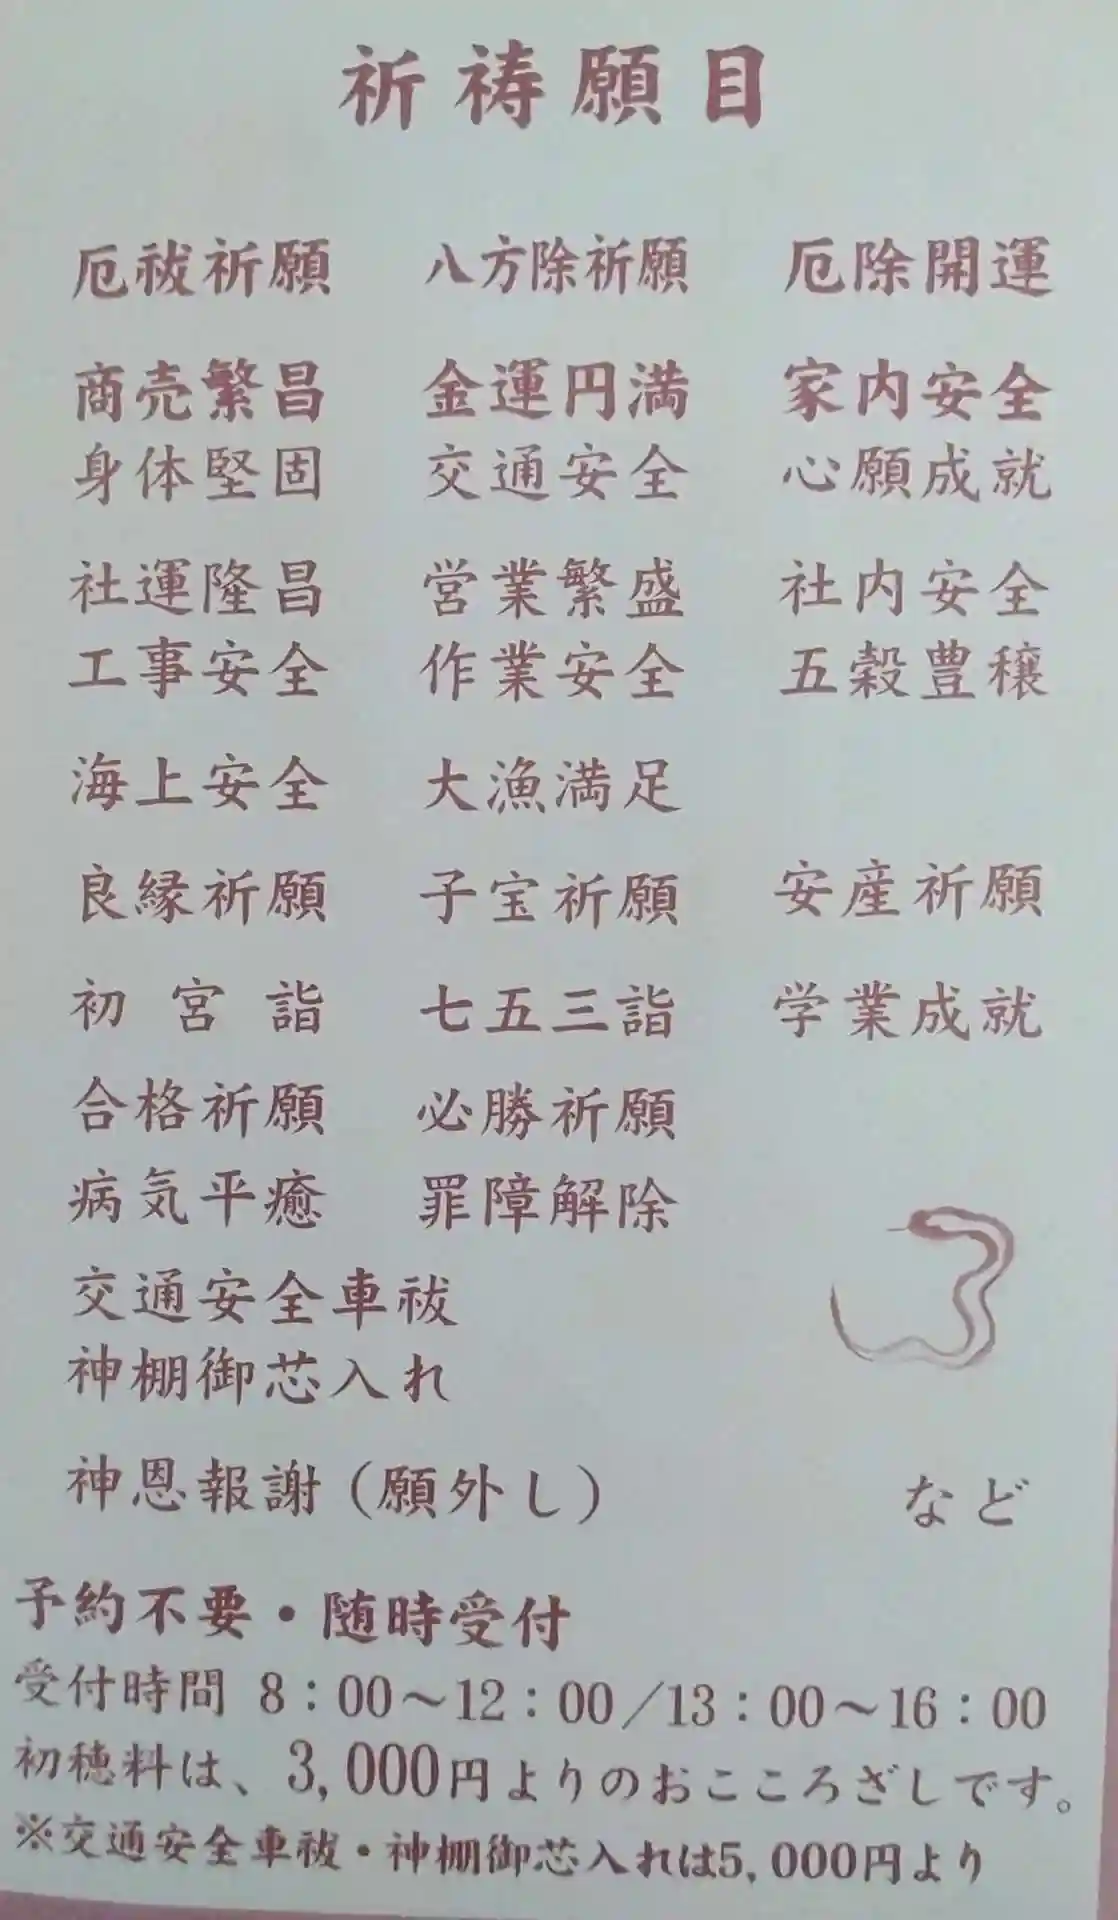 祈祷願目
厄祓祈願 八方除祈願 厄除開運
商売繁昌 金運円満 家内安全
身体堅固 交通安全 心願成就
社運隆昌 営業繁盛 社内安全
工事安全 作業安全 五穀豊穣
海上安全 大漁満足
良縁祈願 子宝祈願 安産祈願
初宮詣 七五三詣 学業成就
合格祈願 必勝祈願
病気平癒 罪障解除
交通安全車祓
神棚御芯入れ
神恩報謝（願外し） など
予約不要・随時受付
受付時間 8：00～12：00／13：00～16：00
初穂料は、3,000円よりのおこころざしです。
※交通安全車祓・神棚御芯入れは5,000円より